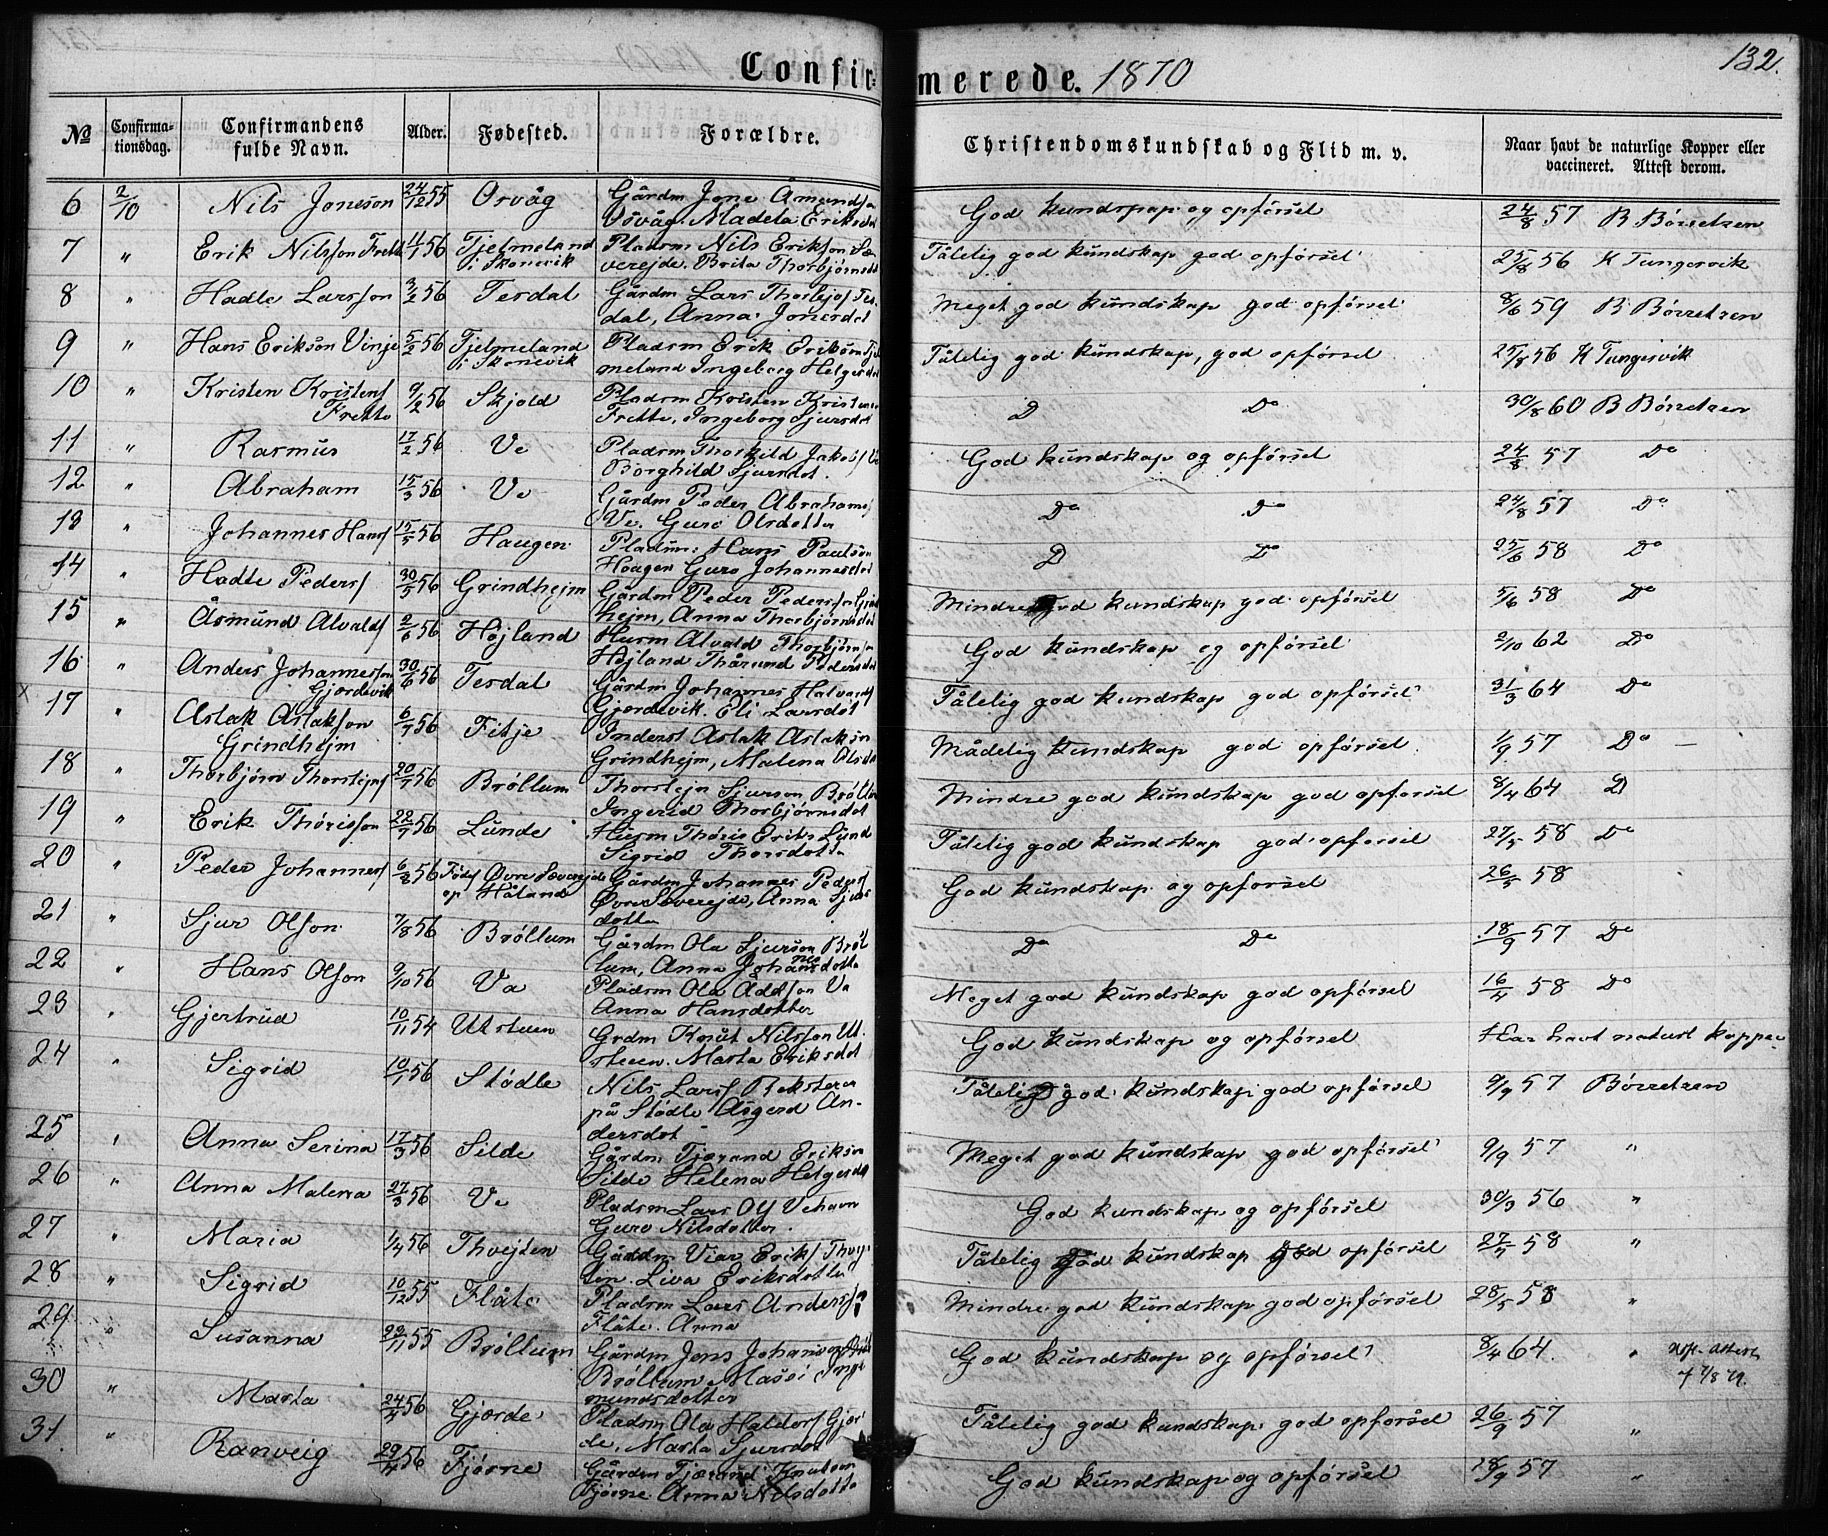 132.
Confirmerede. 1870
No
Confirmationsdag.
Confirmandens fulde Navn.
Alder.
Fødested.
Forældre.
Christendomskundskab og Flid m. v.
Naar havt de naturlige Kopper eller vaccineret. Attest derom.
6 2/10 Nils Joneson 24/12 55 Osvåg Gårdm Jone Åmunds
Osvåg. Madela Eriksdot
God kundskap og opførsel 24/8 57 B Børretzen
7 " Erik Nilsson Frette 11/1 56 Tjelmeland Pladsm Nils Erikson Sæ
i Skonevik verejde. Brita Thorbjørnsdot
Tålelig god kundskap god opførsel 25/8 56 K Tungesvik
8 " Hadle Larsson 3/2 56 Tesdal Gårdm Lars Tes
dal, Anna Jonesdot
Meget god kundskap god opførsel 8/6 59 B Børretzen
9 " Hans Erikson Vinje 5/2 56 Tjelmeland Pladsm Erik Erikson Tjel
i Skonevik meland Ingeborg Helgesdot
Tålelig god kundskap, god opførsel 25/8 56 K Tungesvik
10 " Kristen Kristens 9/2 56 Skjold Pladsm Kristen Kristens
Frette Frette, Ingeborg Sjursdot
D Do 30/8 60 B Børretzen
11 " Rasmus 17/2 56 Ve Pladsm Thorkild Jakobs Ve
Borghild Sjursdot.
God kundskap og opførsel 24/8 57 Do
12 " Abraham 15/3 56 Ve Gårdm Peder Abrahams
Ve. Guro Olsdotter
Do Do 24/8 57 Do
13 " Johannes Hans 15/5 56 Haugen Pladsm: Hans Paulson
Haugen Guro Johannesdot
D Do 25/6 58 Do
14 " Hadle Peders 30/5 56 Grindhejm Gårdm Peder Pederson Grind
hejm, Anna Thorbjørnsdot
Mindre god kundskap god opførsel 5/6 58 Do
15 " Åsmund Alvalds 2/6 56 Højland Husm Alvald Thorbjørns
Højland Pedersdot
God kundskap og opførsel 2/10 62 Do
16 " Anders Johannesson 30/6 56 Tesdal Gårdm Johannes Halvards
Gjerdevik Gjerdevik. Eli Larsdot
Tålelig kundskap god opførsel 31/3 64 Do
x 17 " Aslak Aslakson 6/7 56 Fitje Inderst Aslak Aslakson
Grindhejm Grindhejm, Malena Olsdot
Mådelig kundskap god opførsel 1/9 57 Do —
18 " Thorbjørn Thorstejns 20/7 56 Brøllum Thorstejn Sjurson Brøllum
Ingerid Thorbjørnsdot
Mindre god kundskap god opførsel 8/4 64 D
19 " Erik Thørisson 22/7 56 Lunde Husm Thøris Eriks Lund
Sigrid Thorsdotte
Tålelig god kundskap god opførsel 27/5 58 Do
20 " Peder Johannes 6/8 56 Føds Øvre Sæverejde Gårdm Johannes Peders
op Håland Øvre Sæverejde, Anna Sjurs
dotte
God kundskap og opførsel 26/5 58
21 " Sjur Olson 7/8 56 Brøllum Gårdm Ola Sjurson Brøl
lum, Anna Johannesdotte
Do Do 18/9 57 Do
22 " Hans Olson 9/10 56 Va Pladsm Ola Va
Anna Hansdotter
Meget god kundskap god opførsel 16/4 58 Do
23 " Gjertrud 10/11 54 Utsteen Grdm Knut Nilsson Ut
steen. Marta Eriksdot
God kundskap og opførsel Har havt naturl kopper
24 " Sigrid 10/1 56 Stødle Nils Lars Reksteren
på Stødle Åsgerd An-
dersdot
Tålelig god kundskap god opførsel 9/9 57 Børretzen
25 " Anna Serina 17/3 56 Silde Gårdm Tjærand Erikson
Silde Helena Helgesdot
Meget god kundskap god opførsel 9/9 57 "
26 " Anna Malena 27/3 56 Ve Pladsm Lars Ols Vehavn
Guro Nilsdotter.
God kundskap og opførsel 30/9 56 "
27 " Maria 1/4 56 Thvejten Gårdm Viar Eriks Thvej
ten. Liva Eriksdotte
Tålelig god kundskap god opførsel 27/5 58 "
28 " Sigrid 10/12 55 Flåte Pladsm Lars Anders
Flåte. Anna
Mindre god kundskap god opførsel 28/5 58 "
29 " Susanna 23/11 55 Brøllum Gårdm Jens Johannes
Brøllum Inge
mundsdotter
God kundskap og opførsel 8/4 64. "
30 " Marta 24/4 56 Gjerde Pladsm Ola Haldors Gjer
de, Marta Sjursdot
Tålelig god kundskap god opførsel 26/9 57 "
31. " Ranveig 29/4 56 Fjøsne Gårdm Tjærand Knutson
Fjøsne. Anna Nilsdotte
God kundskap og opførsel 28/9 57 "